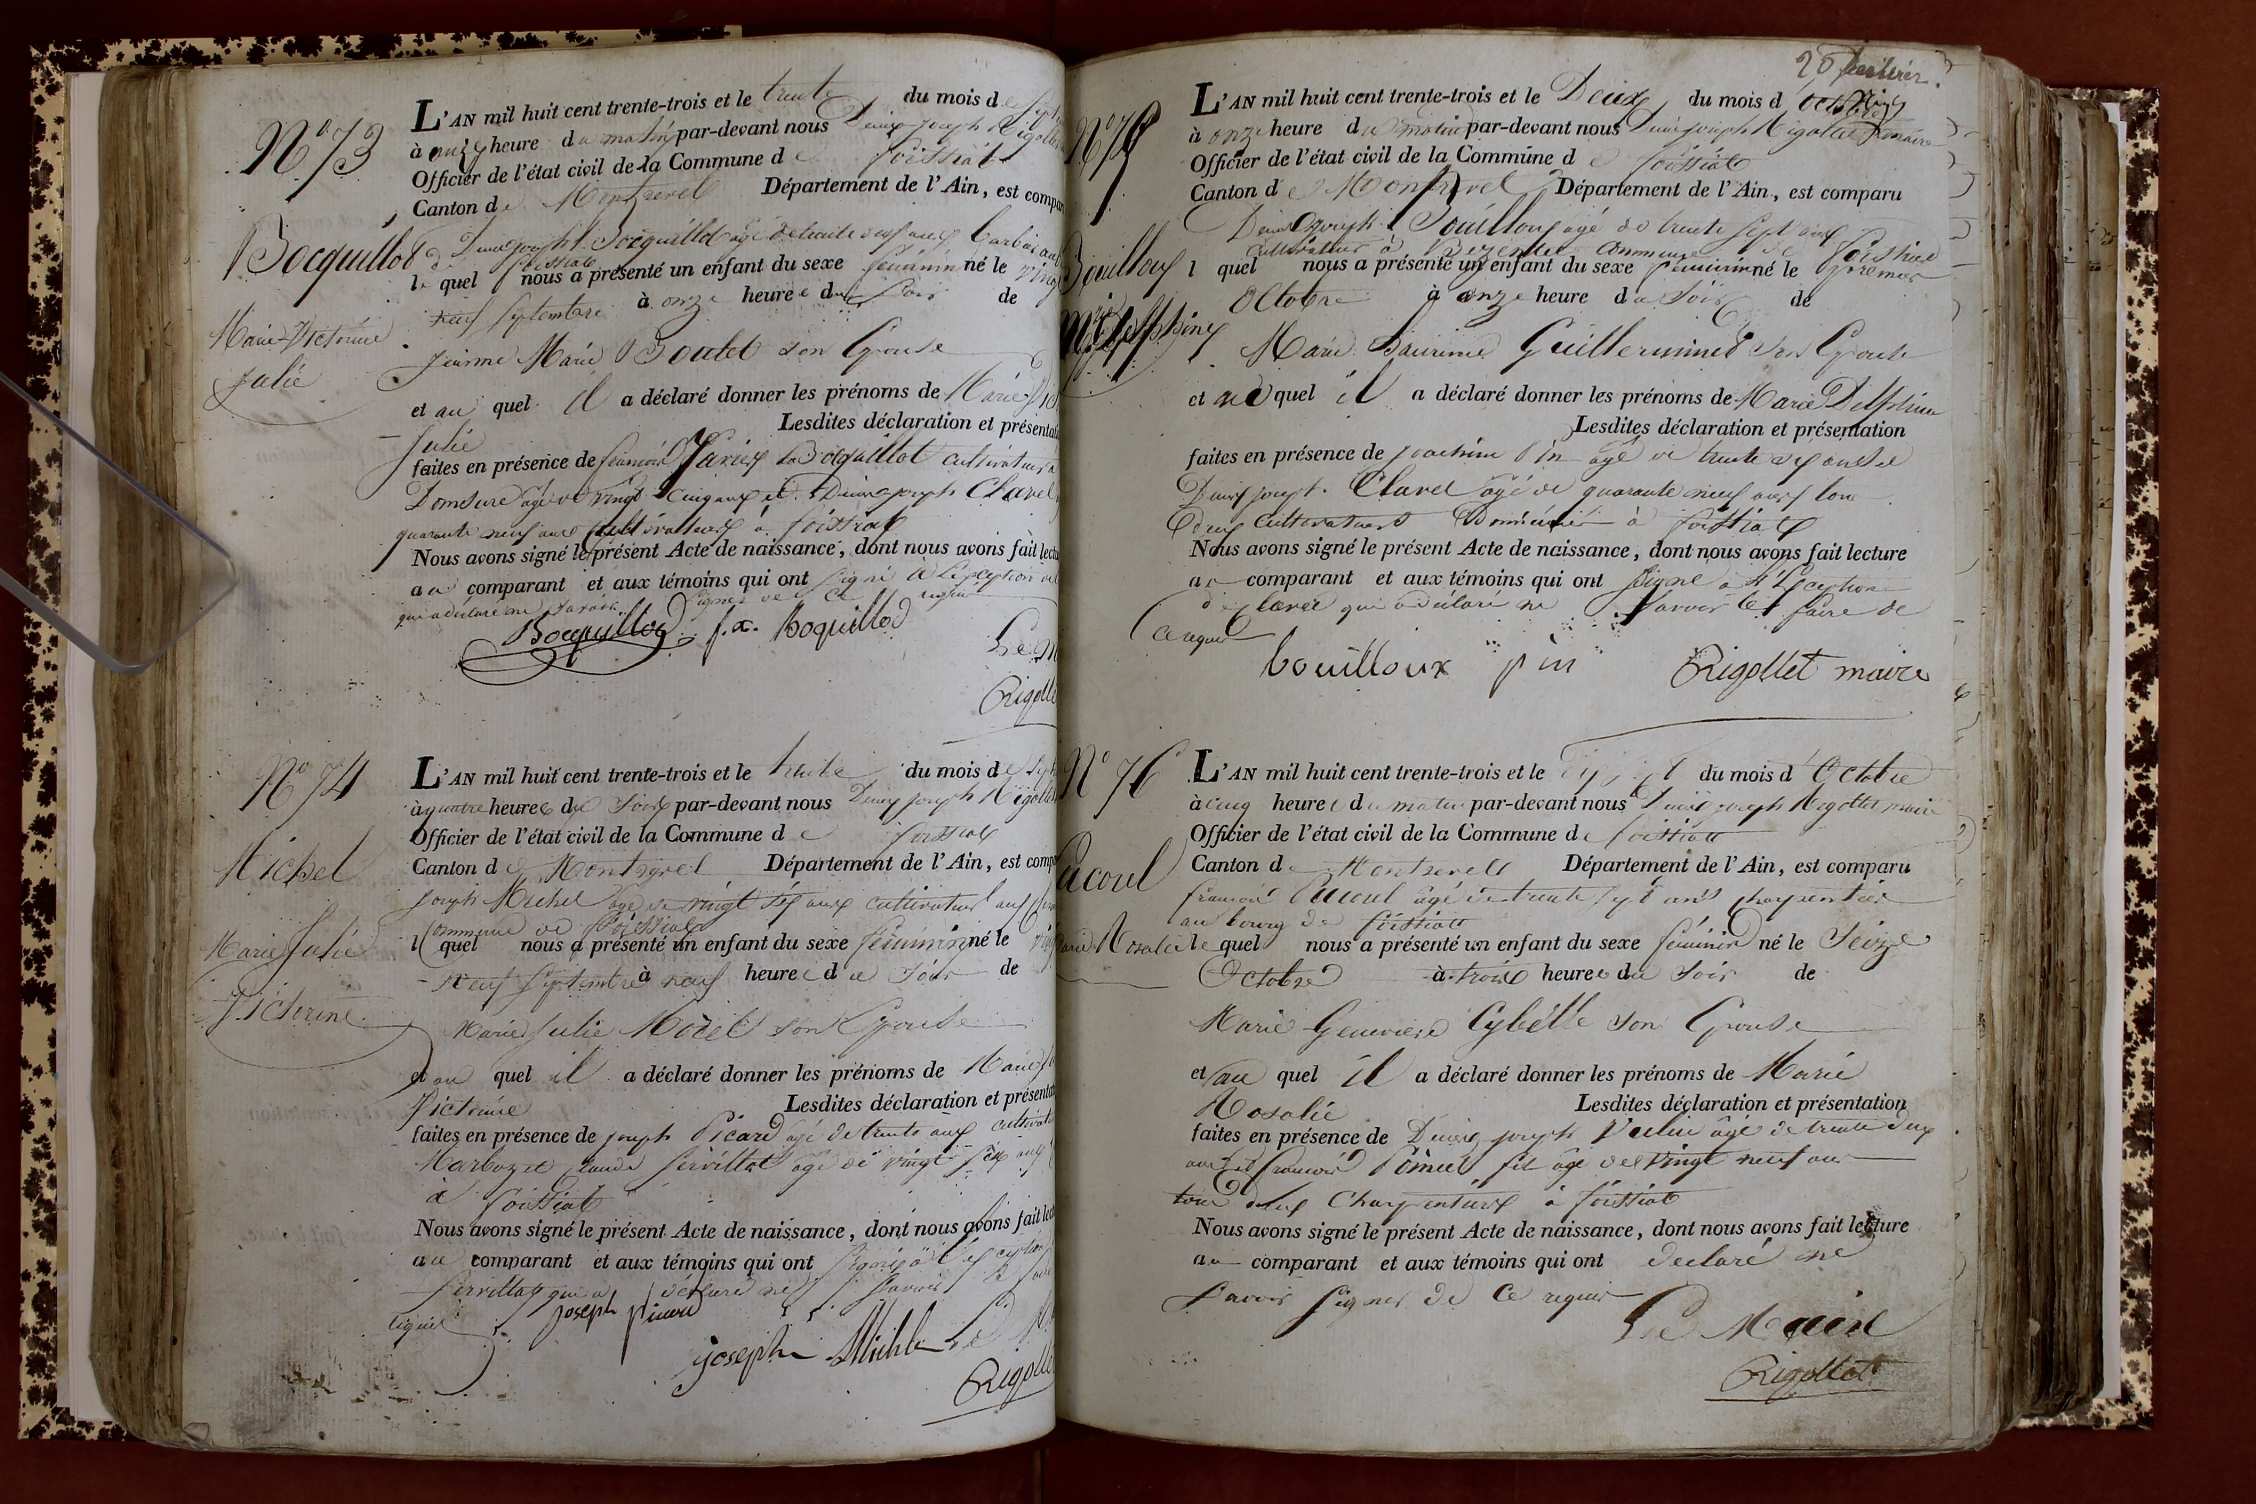 N° 73
Bocquillod
Marie Victorine
Julie
L'AN mil huit cent trente-trois et le trente du mois de
à onze heure du matin par-devant nous Denis Joseph Rigollet
Officier de l'état civil de la Commune de foissiat
Canton de Montrevel Département de l'Ain, est compar
Denis joseph Bocquillod agé de trente neuf ans
de foissiat
le quel nous a présenté un enfant du sexe féminin né le ving
neuf septembre à onze heure du soir de
jeanne Marie Boutet son Epouse
et au quel il a déclaré donner les prénoms de Marie
Julie Lesdites déclaration et présentat
faites en présence de françois Xavier Bocquillot cultivateur a
Domsure agé de vingt cinq ans et Denis joseph Clavel
quarante neuf ans cultivateurs à foissiat
Nous avons signé le présent Acte de naissance, dont nous avons fait lectu
au comparant et aux témoins qui ont signé a l'exception
qui a déclaré ne savoir signer de ce requis
Bocquillod f. x. Boquillod
Le M
Rigolle
N° 74
Michel
Marie Julie
Victorine
L'AN mil huit cent trente-trois et le trente du mois de sept
à quatre heures du soir par-devant nous Denis joseph Rigollet
Officier de l'état civil de la Commune de foissiat
Canton de Montrevel Département de l'Ain, est compa
joseph Michel agé de vingt six ans cultivateur aux
commune de foissiat
le quel nous a présenté un enfant du sexe féminin né le ving
neuf septembre à neuf heures du soir de
Marie Julie Morel son Epouse
et au quel il a déclaré donner les prénoms de Marie
Victorine Lesdites déclaration et présentat
faites en présence de joseph Picard agé de trente ans cultivat
Marboz et claude servillat agé de vingt six ans
à foissiat
Nous avons signé le présent Acte de naissance, dont nous avons fait lect
au comparant et aux témoins qui ont signé à l'exception
servillat qui a déclaré ne savoir le faire
requis joseph picard
joseph Michel
Rigolle
N° 75
Bouilloux
Mie Delphine
L'AN mil huit cent trente-trois et le Deux du mois d'octobre
à onze heure du matin par-devant nous Denis joseph Rigollet maire
Officier de l'état civil de la Commune de foissiat
Canton de Montrevel Département de l'Ain, est comparu
Denis joseph Bouilloux agé de trente sept ans
cultivateur à commune de foissiat
l quel nous a présenté un enfant du sexe féminin né le premier
Octobre à onze heure du soir de
Marie Guilleminet son Epouse
et au quel il a déclaré donner les prénoms de Marie Delphine
Lesdites déclaration et présentation
faites en présence de joachim Pin agé de trente six ans et
Denis joseph Clavel agé de quarante neuf ans tous
deux cultivateurs Domiciliés à foissiat
Nous avons signé le présent Acte de naissance, dont nous avons fait lecture
au comparant et aux témoins qui ont signé à l'exception
de clavel qui a déclaré ne savoir le faire de
ce requis
bouilloux pin Rigollet maire
N° 76
Pacoul
Marie Rosalie
L'AN mil huit cent trente-trois et le du mois d'Octobre
à cinq heures du matin par-devant nous Denis joseph Rigollet maire
Officier de l'état civil de la Commune de foissiat
Canton de Montrevel Département de l'Ain, est comparu
françois Pacoul agé de trente sept ans charpentier
au bourg de foissiat
le quel nous a présenté un enfant du sexe féminin né le Seize
Octobre à trois heures du soir de
Marie Genevieve Cybélle son Epouse
et au quel il a déclaré donner les prénoms de Marie
Rosalie Lesdites déclaration et présentation
faites en présence de Denis joseph agé de trente deux
ans et françois fils agé de vingt neuf ans
tous deux Charpentiers à foissiat
Nous avons signé le présent Acte de naissance, dont nous avons fait lecture
au comparant et aux témoins qui ont declaré ne
savoir signer de ce requis
Le Maire
Rigollet